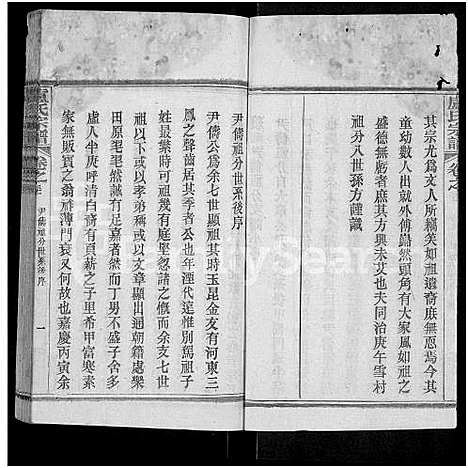 盧氏宗譜 卷之
其宗尤為文人所竊笑如祖遺裔庶無惡焉今其
童幼數人出就外傅齠然頭角有大家風如祖之
盛德無虧者庶其方興未艾也夫同治庚午雪村
祖分八世孫方謹識
尹儔祖分世系後序
尹儔公為余七世顯祖其時玉昆金友有河東三
鳳之聲齒居其季者公也年湮代遠惟別駕祖子
姓最繁時有庭堅忽諸之慨而余支七世
祖以下或以孝弟稱或以文章顯出通朝籍處樂
田原毣毣然誠有足嘉者然而丁男不盛子舍多
虛人坐庚呼清白裔有貢薪之子里希甲富寒素
家無販賓之翁祚薄門衰又何故也嘉慶丙寅余
盧氏宗譜 卷之
尹儔祖分世系後序
一